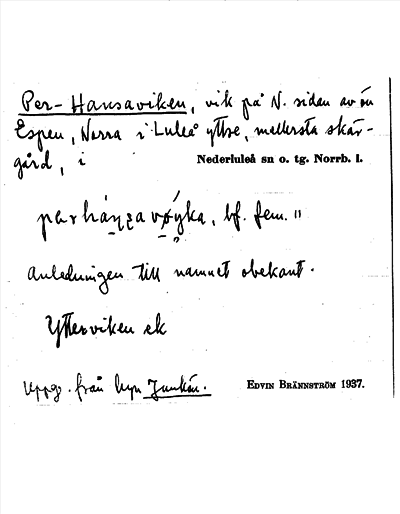 Per-Hansaviken, vik på N. sidan av ön
Espen, Norra i Luleå yttre, mellersta skär-
gård, i Nederluleå sn o. tg. Norrb. l.
bf. fem. "
Anledningen till namnet obekant.
Ytterviken ek
Uppg. från byn Junkön.
EDVIN BRÄNNSTRÖM 1937.